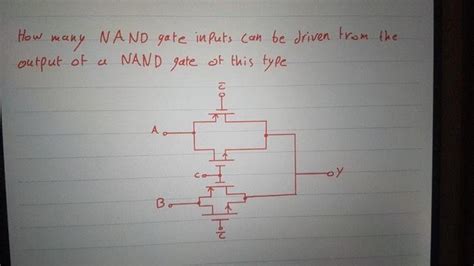 How many NAND gate inputs can be driven from the
output of a NAND gate of this type
C̅
A
C
Y
B
C̅